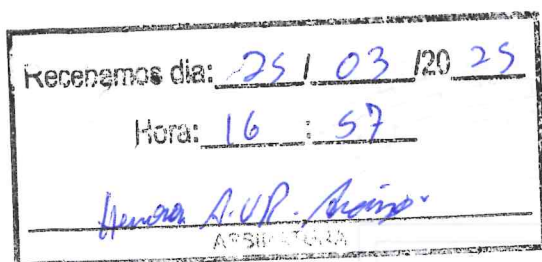 Recebamos dia: 25 / 03 /20 25
Hora: 16 : 57
A.V.R.
ASSINATURA